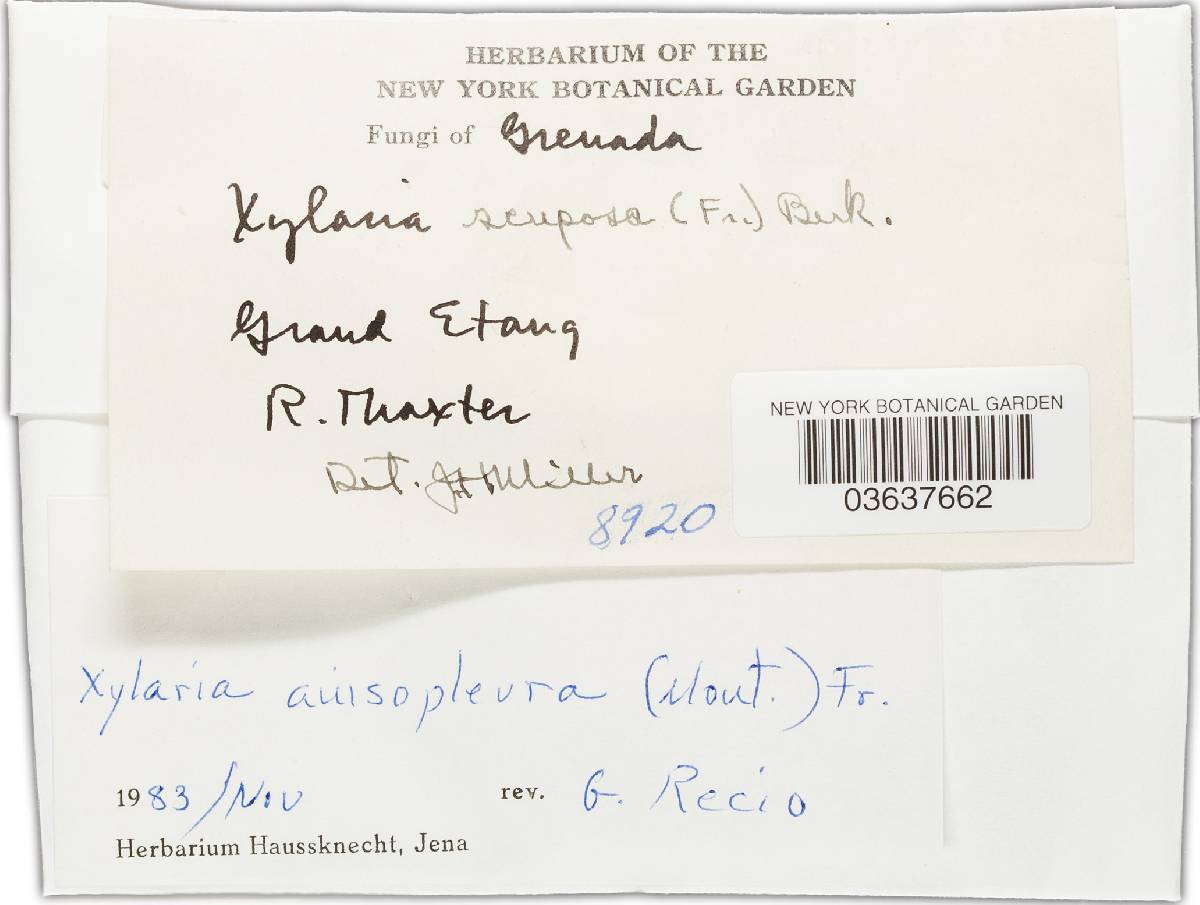 HERBARIUM OF THE
NEW YORK BOTANICAL GARDEN
Fungi of Grenada
Xylaria scruposa (Fr.) Berk.
Grand Etang
R. Thaxter
Det. J H Miller
8920
NEW YORK BOTANICAL GARDEN
03637662
Xylaria anisopleura (Mont.) Fr.
1983/Nov rev. G. Recio
Herbarium Haussknecht, Jena